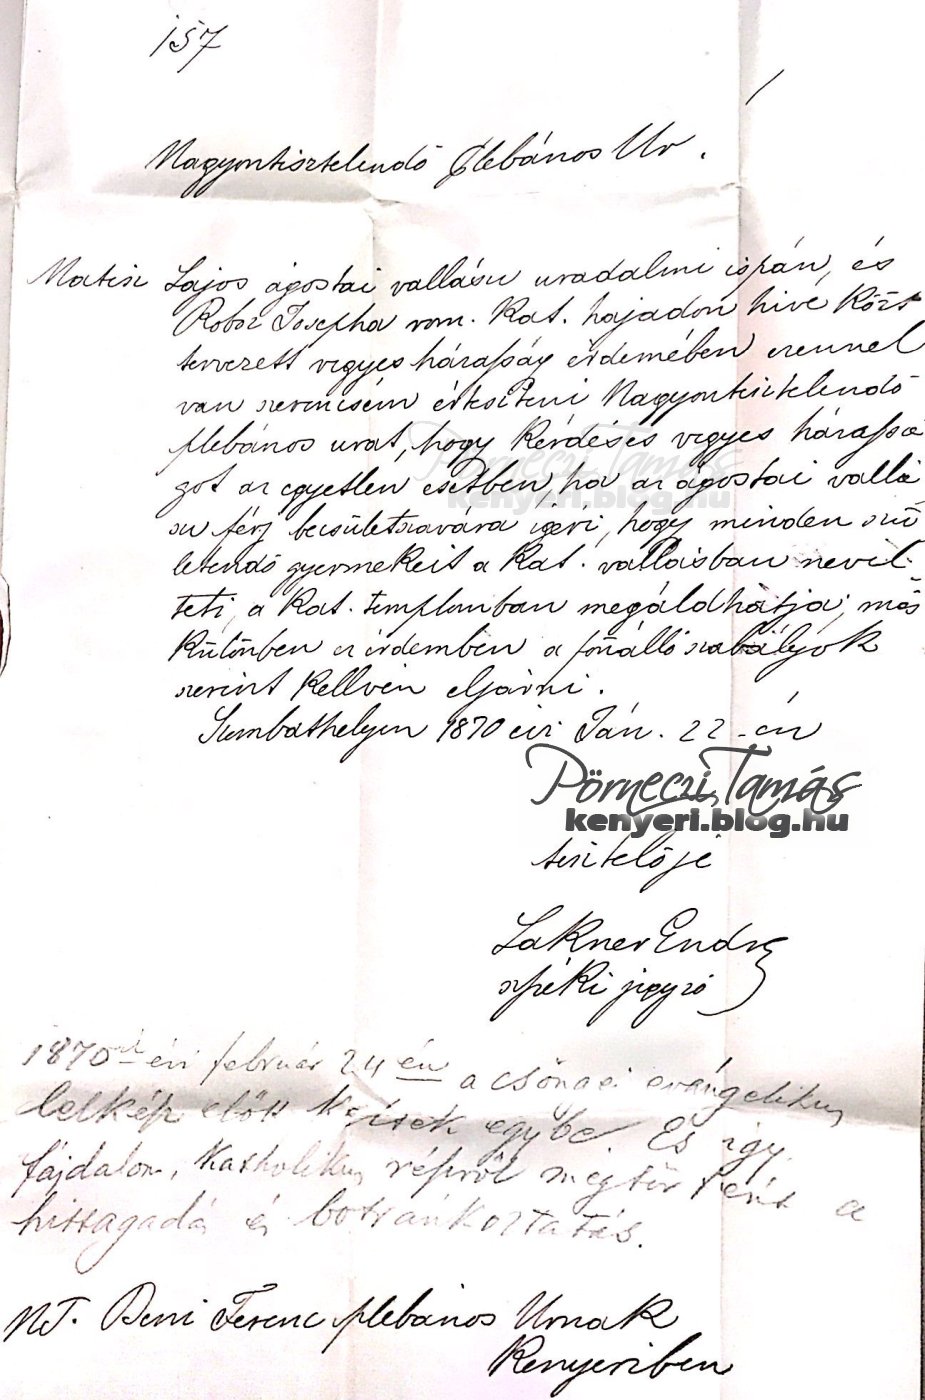 157
Nagyontisztelendő Plebános Ur.
Matisz Lajos ágostai vallásu uradalmi ispán, és
Roboz Josepha rom. Kat. hajadon hive közt
tervezett vegyes házasság érdemében ezennel
van szerencsém értesiteni Nagyontisztelendő
plebános urat, hogy kérdéses vegyes házassá
got az egyetlen esetben, ha az ágostai vallá
su férj becsületszavára igéri, hogy minden szü
letendő gyermekeit a Kat. vallásban nevel
teti, a Kat. templomban megáldhatja; más
különben ez érdemben a fönálló szabályok
szerint kellvén eljárni.
Szombathelyen 1870 évi Ján. 22-én
Pörneczi Tamás
kenyeri.blog.hu
tisztelője
Lakner Endre
szpéki jegyző
1870ik évi február 24én a csöngei evángelikus
lelkész előtt keltek egybe és igy
fájdalom, Katholikus részről megtörtént a
hittagadás és botránkoztatás.
NT. Deni Ferenc plebános Urnak
Kenyeriben